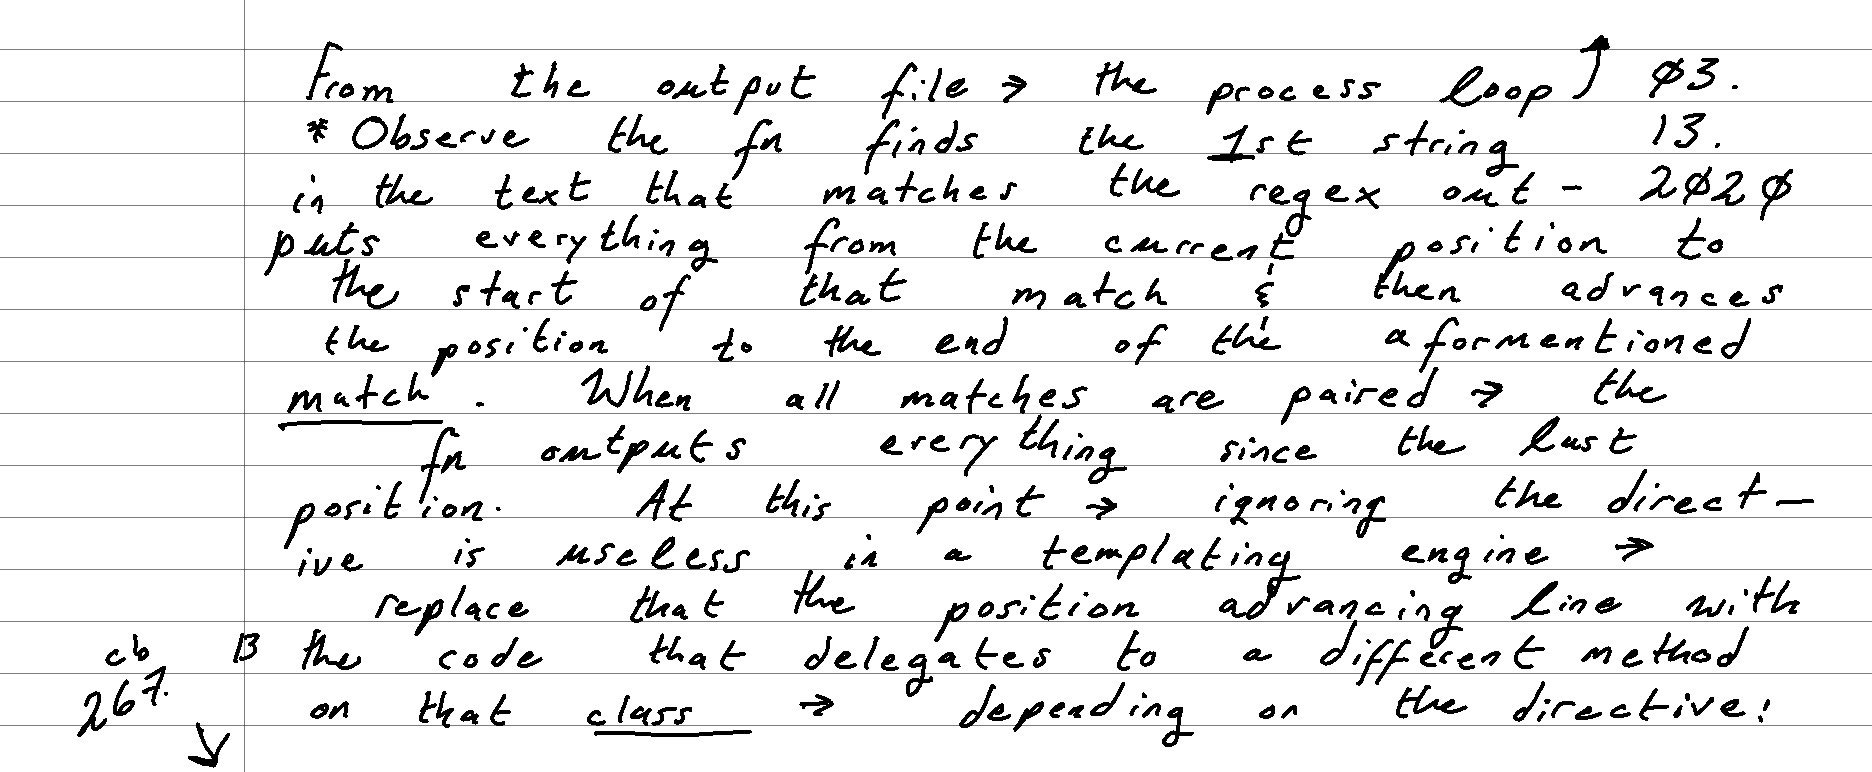 From the output file → the process loop ↑ Ø3.
* Observe the fn finds the 1st string 13.
in the text that matches the regex out- 2Ø2Ø
puts everything from the current position to
the start of that match & then advances
the position to the end of the aformentioned
match. When all matches are paired → the
fn outputs everything since the last
position. At this point → ignoring the direct-
ive is useless in a templating engine →
replace that the position advancing line with
cb 13 the code that delegates to a different method
267. on that class → depending on the directive:
↓